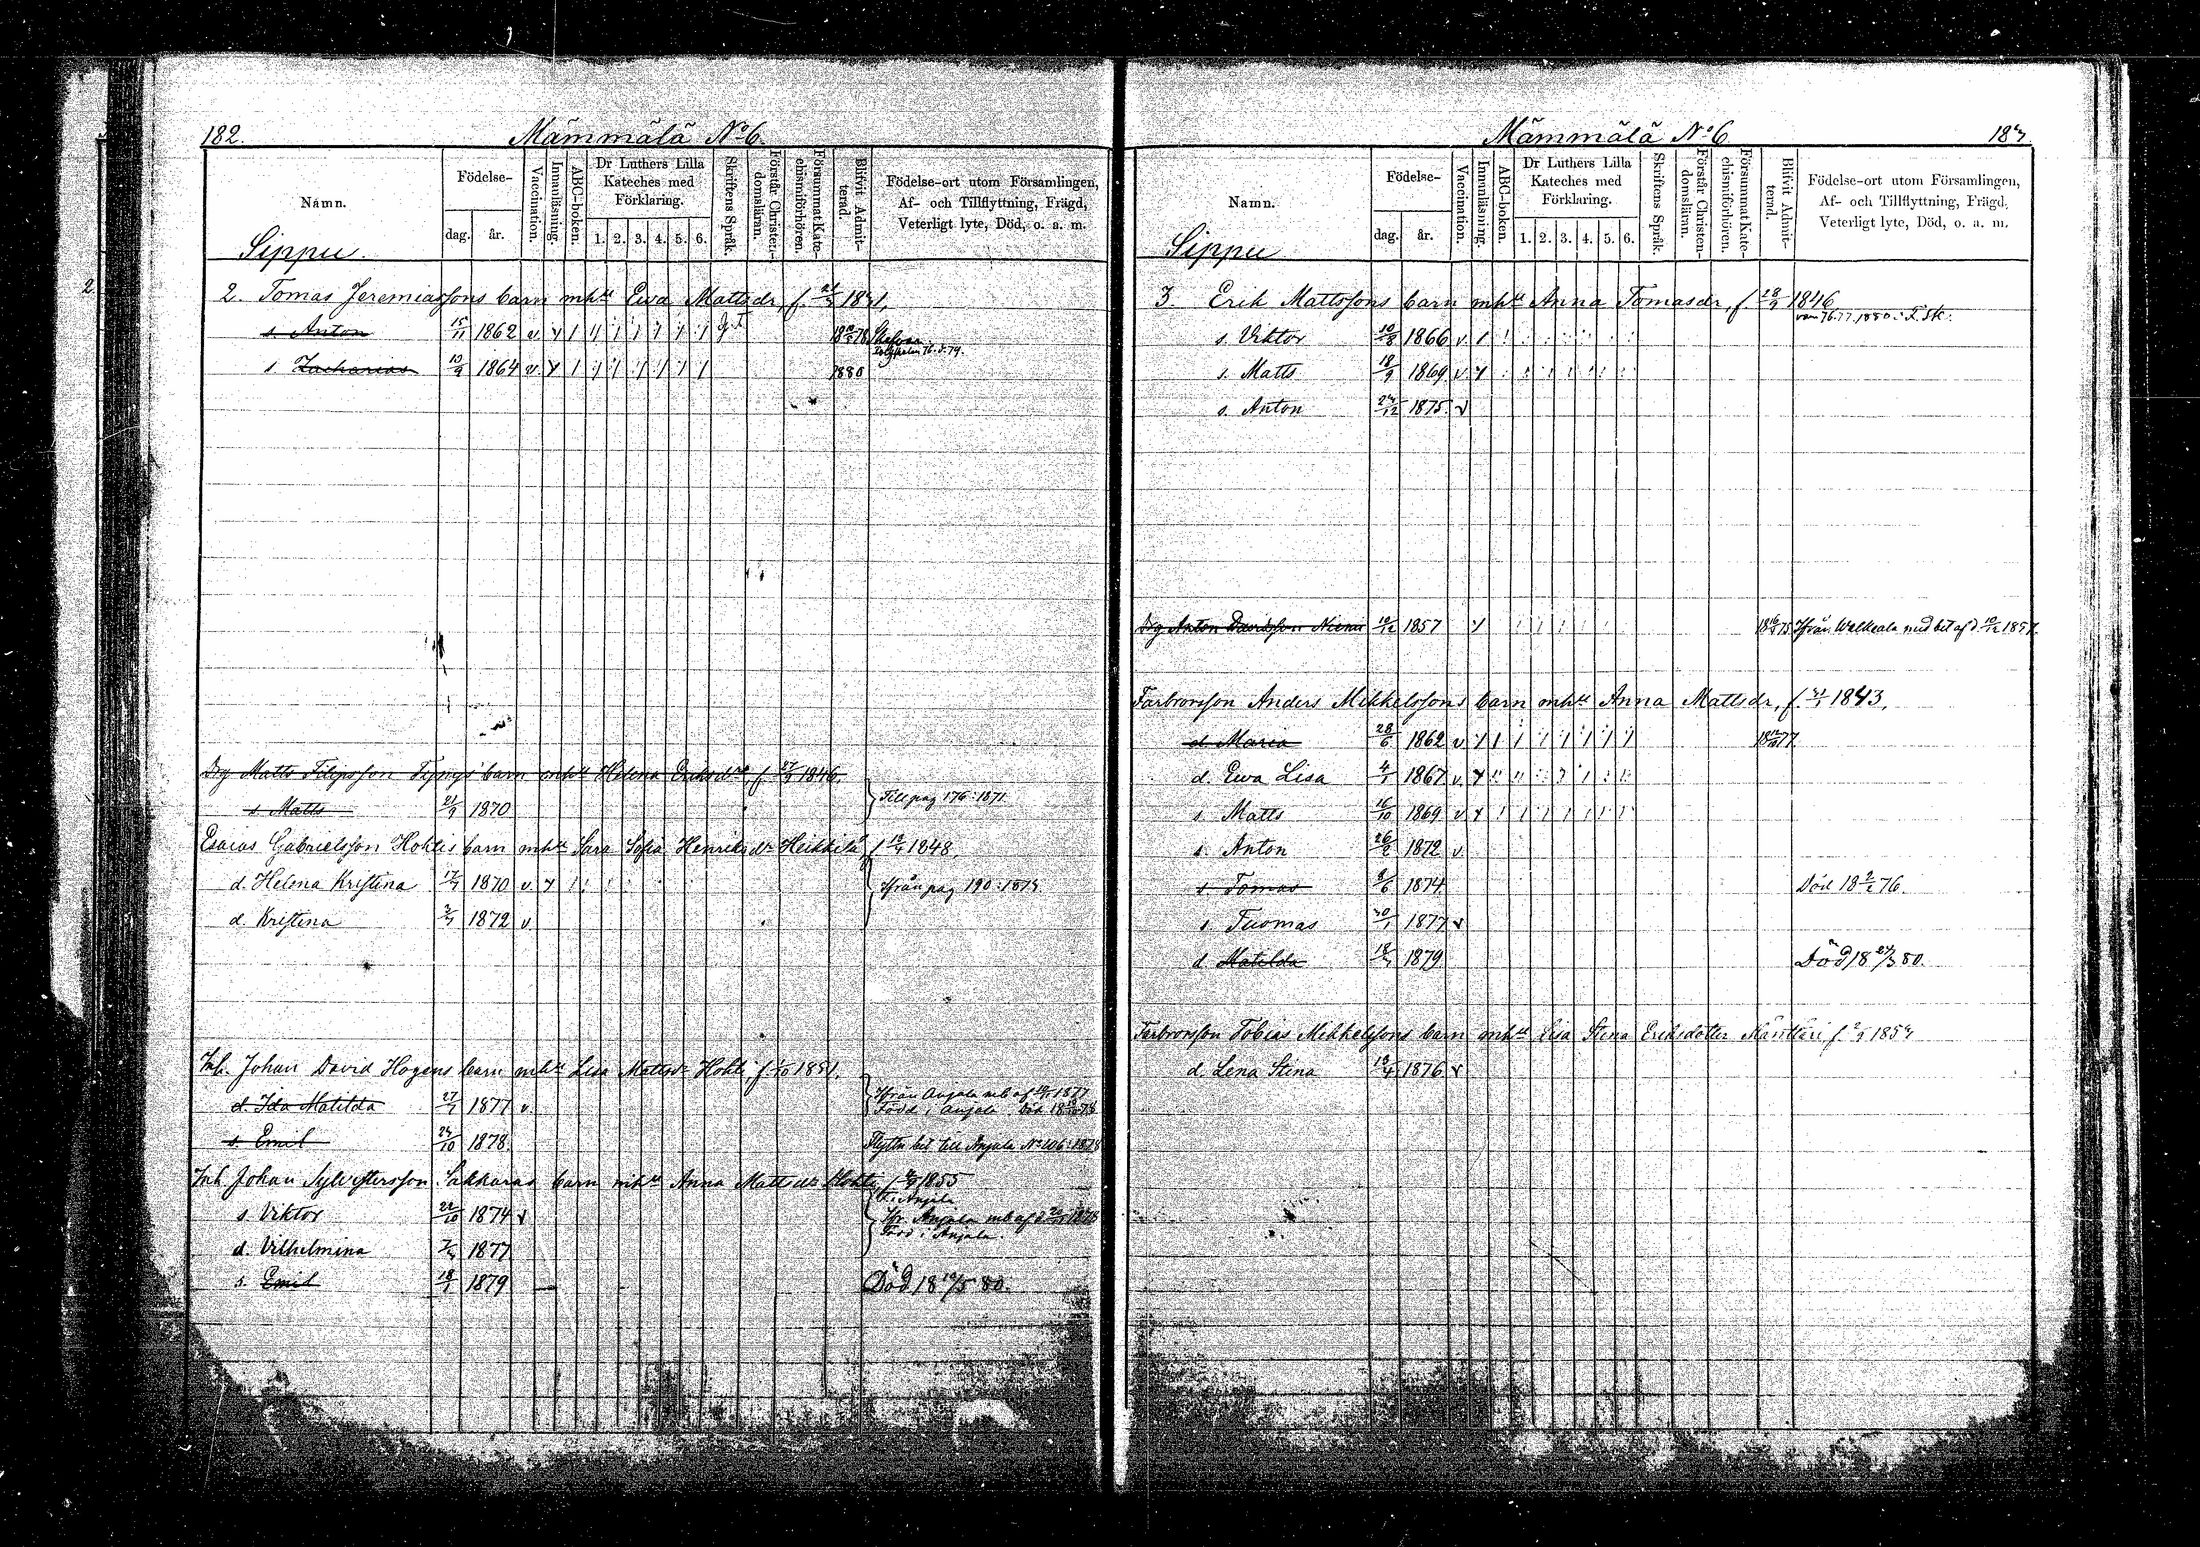 182.
Mämmälä No 6.
Namn.
Födelse-
dag.
år.
Vaccination.
Innanläsning.
ABC-boken.
Dr Luthers Lilla
Kateches med
Förklaring.
1. 2. 3. 4. 5. 6.
Skriftens Språk.
Förstår Christen-
domslänn.
Försummat Kate-
chismiförhören.
Blifvit Admit-
terad.
Födelse-ort utom Församlingen,
Af- och Tillflyttning, Frägd,
Veterligt lyte, Död, o. a. m.
Sippu.
2.
2. Tomas Jeremiassons barn mhu Ewa Mattsdr, f.
s. Anton 15/11 1862 v.
s Zacharias 10/9 1864 v. 1880
Drg Matts Filipsson barn mhu Helena Eriksdr f 27/3 1846.
s Matts 21/9 1870 Till pag 176: 1871
Esaias Gabrielsson Hohtis barn mhu Sara Sofia Henriksdr Heikkilä f 1848.
d. Helena Kristina 17/7 1870 v. Ifrån pag 190:
d. Kristina 1872 v
Inh. Johan David Hogens barn mhu Lisa Mattsdr Hohti f
d. Ida Matilda 27/7 1877 v. Ifrån Anjala mb af 1877
Född i Anjala Död
s. Emil 1878. Flyttn bet till Anjala No 106: 1878
Inh. Johan Sylvestersson Sakkaras barn mhu Anna Mattsdr Hohti f 1855
i Anjala
s Viktor 22/10 1874 v Ifr Anjala mb af
Född i Anjala.
d. Vilhelmina 1877
s. Emil 18/1 1879 Död 18 80.
Mämmälä No 6
183.
Namn.
Födelse-
dag.
år.
Vaccination.
Innanläsning.
ABC-boken.
Dr Luthers Lilla
Kateches med
Förklaring.
1. 2. 3. 4. 5. 6.
Skriftens Språk.
Förstår Christen-
domslänn.
Försummat Kate-
chismiförhören.
Blifvit Admit-
terad.
Födelse-ort utom Församlingen,
Af- och Tillflyttning, Frägd,
Veterligt lyte, Död, o. a. m.
Sippu
3. Erik Mattssons barn mhu Anna Tomasdr, f 28/9 1846
s. Viktor 10/8 1866 v.
s. Matts 18/9 1869 v.
s. Anton 1875. v
Drg Anton Davidsson 10/12 1857 Ifrån Walkeala med bet af d.
Farbrorsson Anders Mikkelssons barn mhu Anna Mattsdr, f. 1843,
d Maria 28/6 1862 v
d. Ewa Lisa 4/1 1867 v.
s. Matts 16/10 1869 v
s. Anton 26/2 1872 v.
s Tomas 8/6 1874 Död 18 76.
s. Tuomas 30/1 1877 v
d Matilda 1879 Död 18 80.
Farbrorsson Tobias Mikkelssons barn mhu Lisa Stena Eriksdotter f.
d. Lena Stena 18/4 1876 v